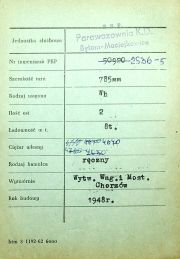 P.K.P.
Jednostka służbowa
Parowozownia K.D.
Bytom-Maciejkowice
Nr inwentarza PKP 50990 2536-5
Szerokość toru 785mm
Rodzaj wagonu Wb
Ilość osi 2
Ładowność w t. 8t.
Ciężar własny 4670
4760 4630
Rodzaj hamulca ręczny
Wytwórnia Wytw. Wag. i Most.
Chorzów
Rok budowy 1948r.